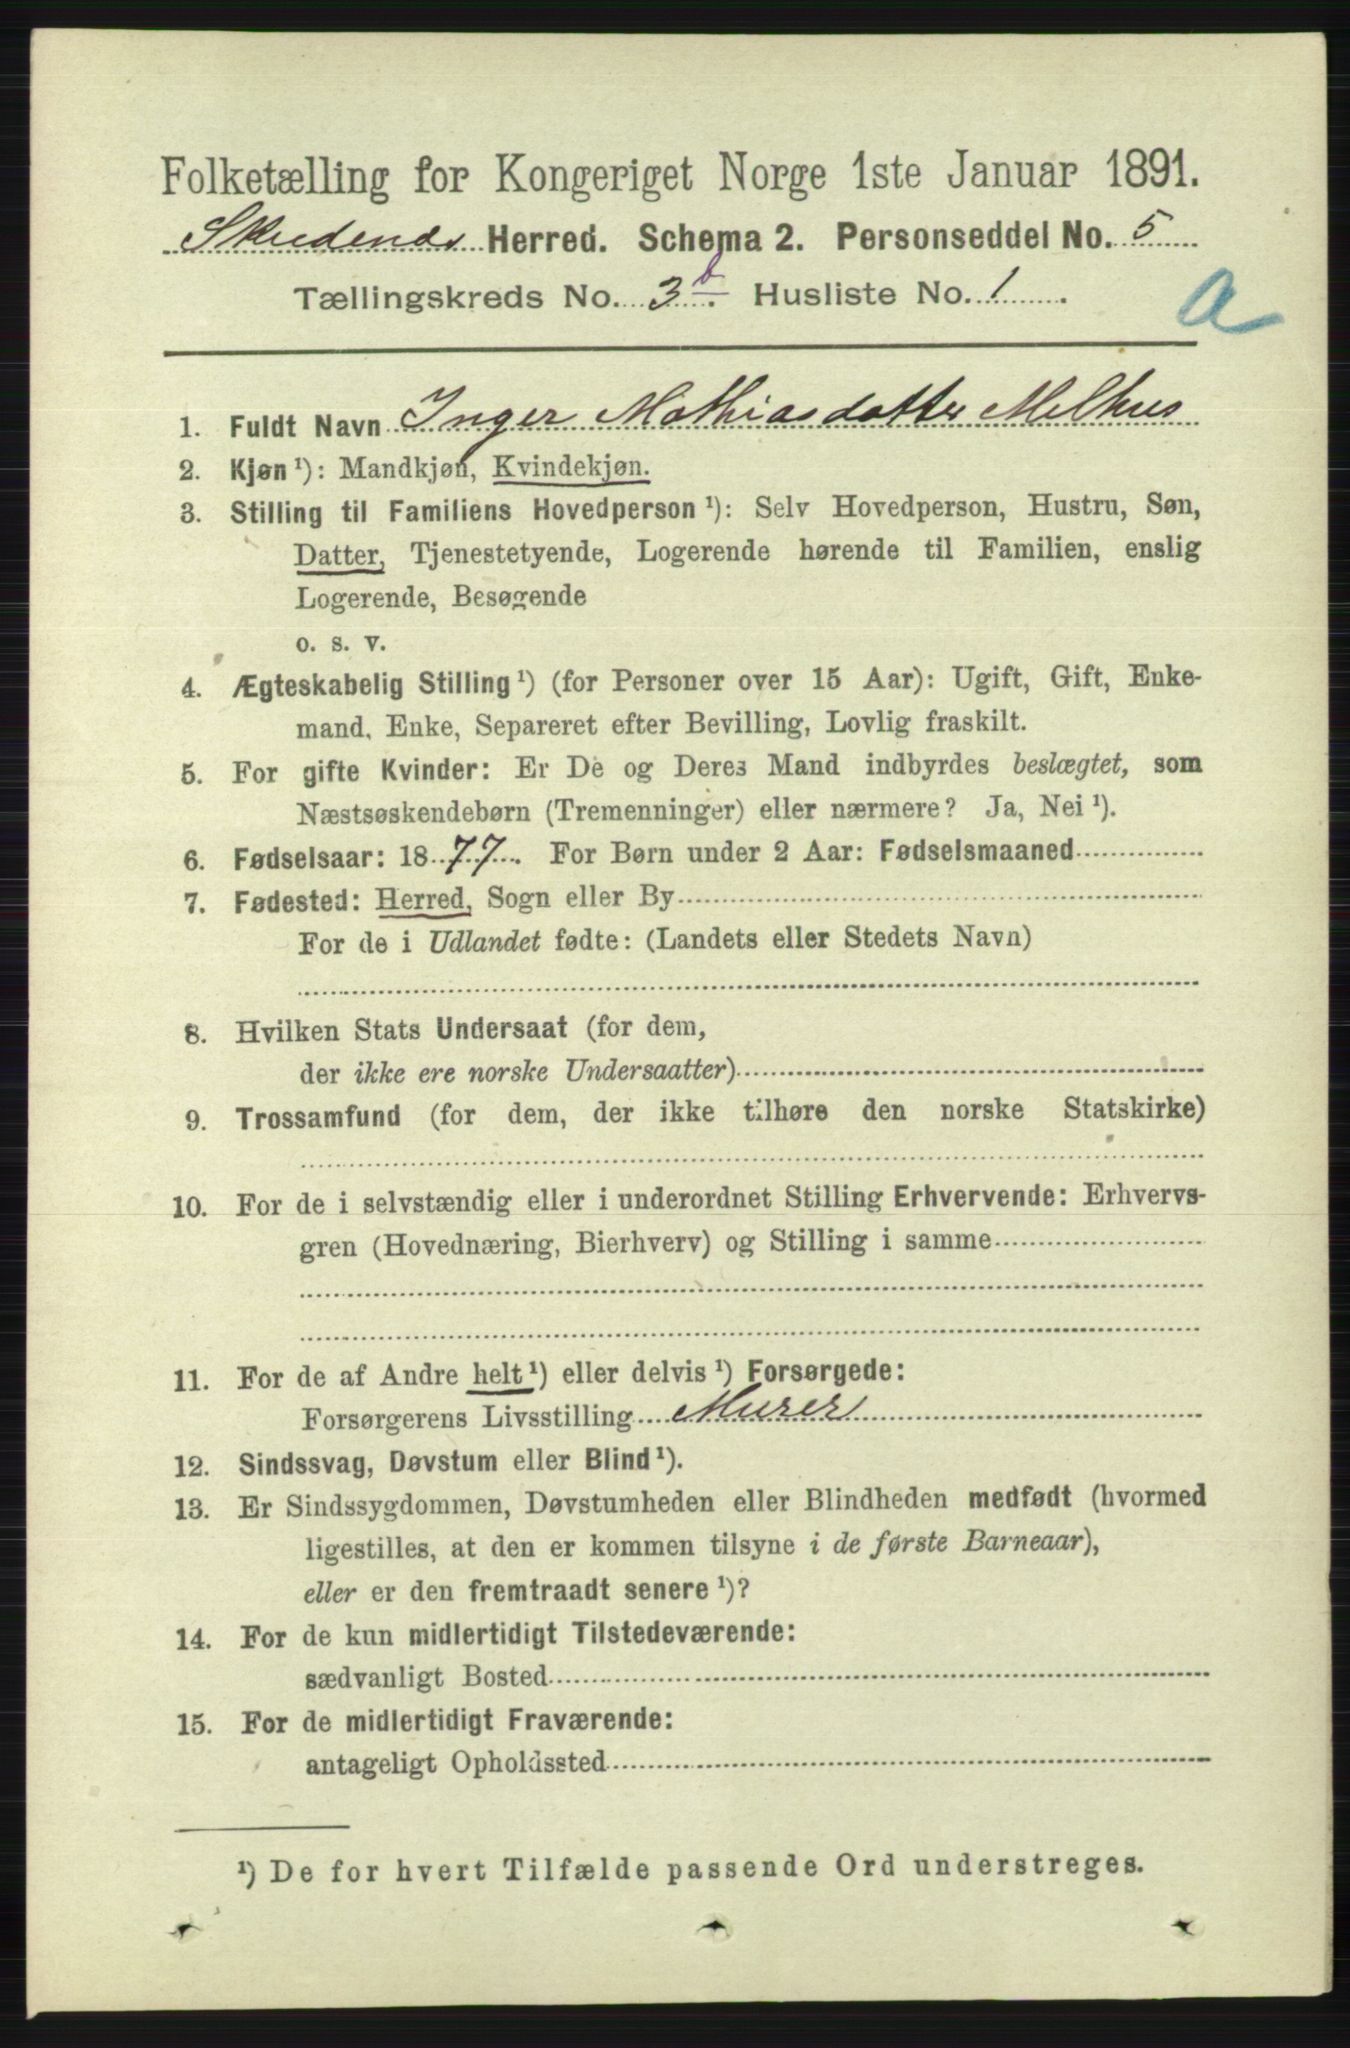 Folketælling for Kongeriget Norge 1ste Januar 1891.
Skudenes Herred. Schema 2. Personseddel No. 5
Tællingskreds No. 3 b. Husliste No. 1.
a
1. Fuldt Navn Inger Mathiasdatter Melhus
2. Kjøn ¹): Mandkjøn, Kvindekjøn.
3. Stilling til Familiens Hovedperson ¹): Selv Hovedperson, Hustru, Søn,
Datter, Tjenestetyende, Logerende hørende til Familien, enslig
Logerende, Besøgende
o. s. v.
4. Ægteskabelig Stilling ¹) (for Personer over 15 Aar): Ugift, Gift, Enke-
mand, Enke, Separeret efter Bevilling, Lovlig fraskilt.
5. For gifte Kvinder: Er De og Deres Mand indbyrdes beslægtet, som
Næstsøskendebørn (Tremenninger) eller nærmere? Ja, Nei ¹).
6. Fødselsaar: 1877. For Børn under 2 Aar: Fødselsmaaned
7. Fødested: Herred, Sogn eller By
For de i Udlandet fødte: (Landets eller Stedets Navn)
8. Hvilken Stats Undersaat (for dem,
der ikke ere norske Undersaatter)
9. Trossamfund (for dem, der ikke tilhøre den norske Statskirke)
10. For de i selvstændig eller i underordnet Stilling Erhvervende: Erhvervs-
gren (Hovednæring, Bierhverv) og Stilling i samme
11. For de af Andre helt ¹) eller delvis ¹) Forsørgede:
Forsørgerens Livsstilling Murer
12. Sindssvag, Døvstum eller Blind ¹).
13. Er Sindssygdommen, Døvstumheden eller Blindheden medfødt (hvormed
ligestilles, at den er kommen tilsyne i de første Barneaar),
eller er den fremtraadt senere ¹)?
14. For de kun midlertidigt Tilstedeværende:
sædvanligt Bosted
15. For de midlertidigt Fraværende:
antageligt Opholdssted
¹) De for hvert Tilfælde passende Ord understreges.